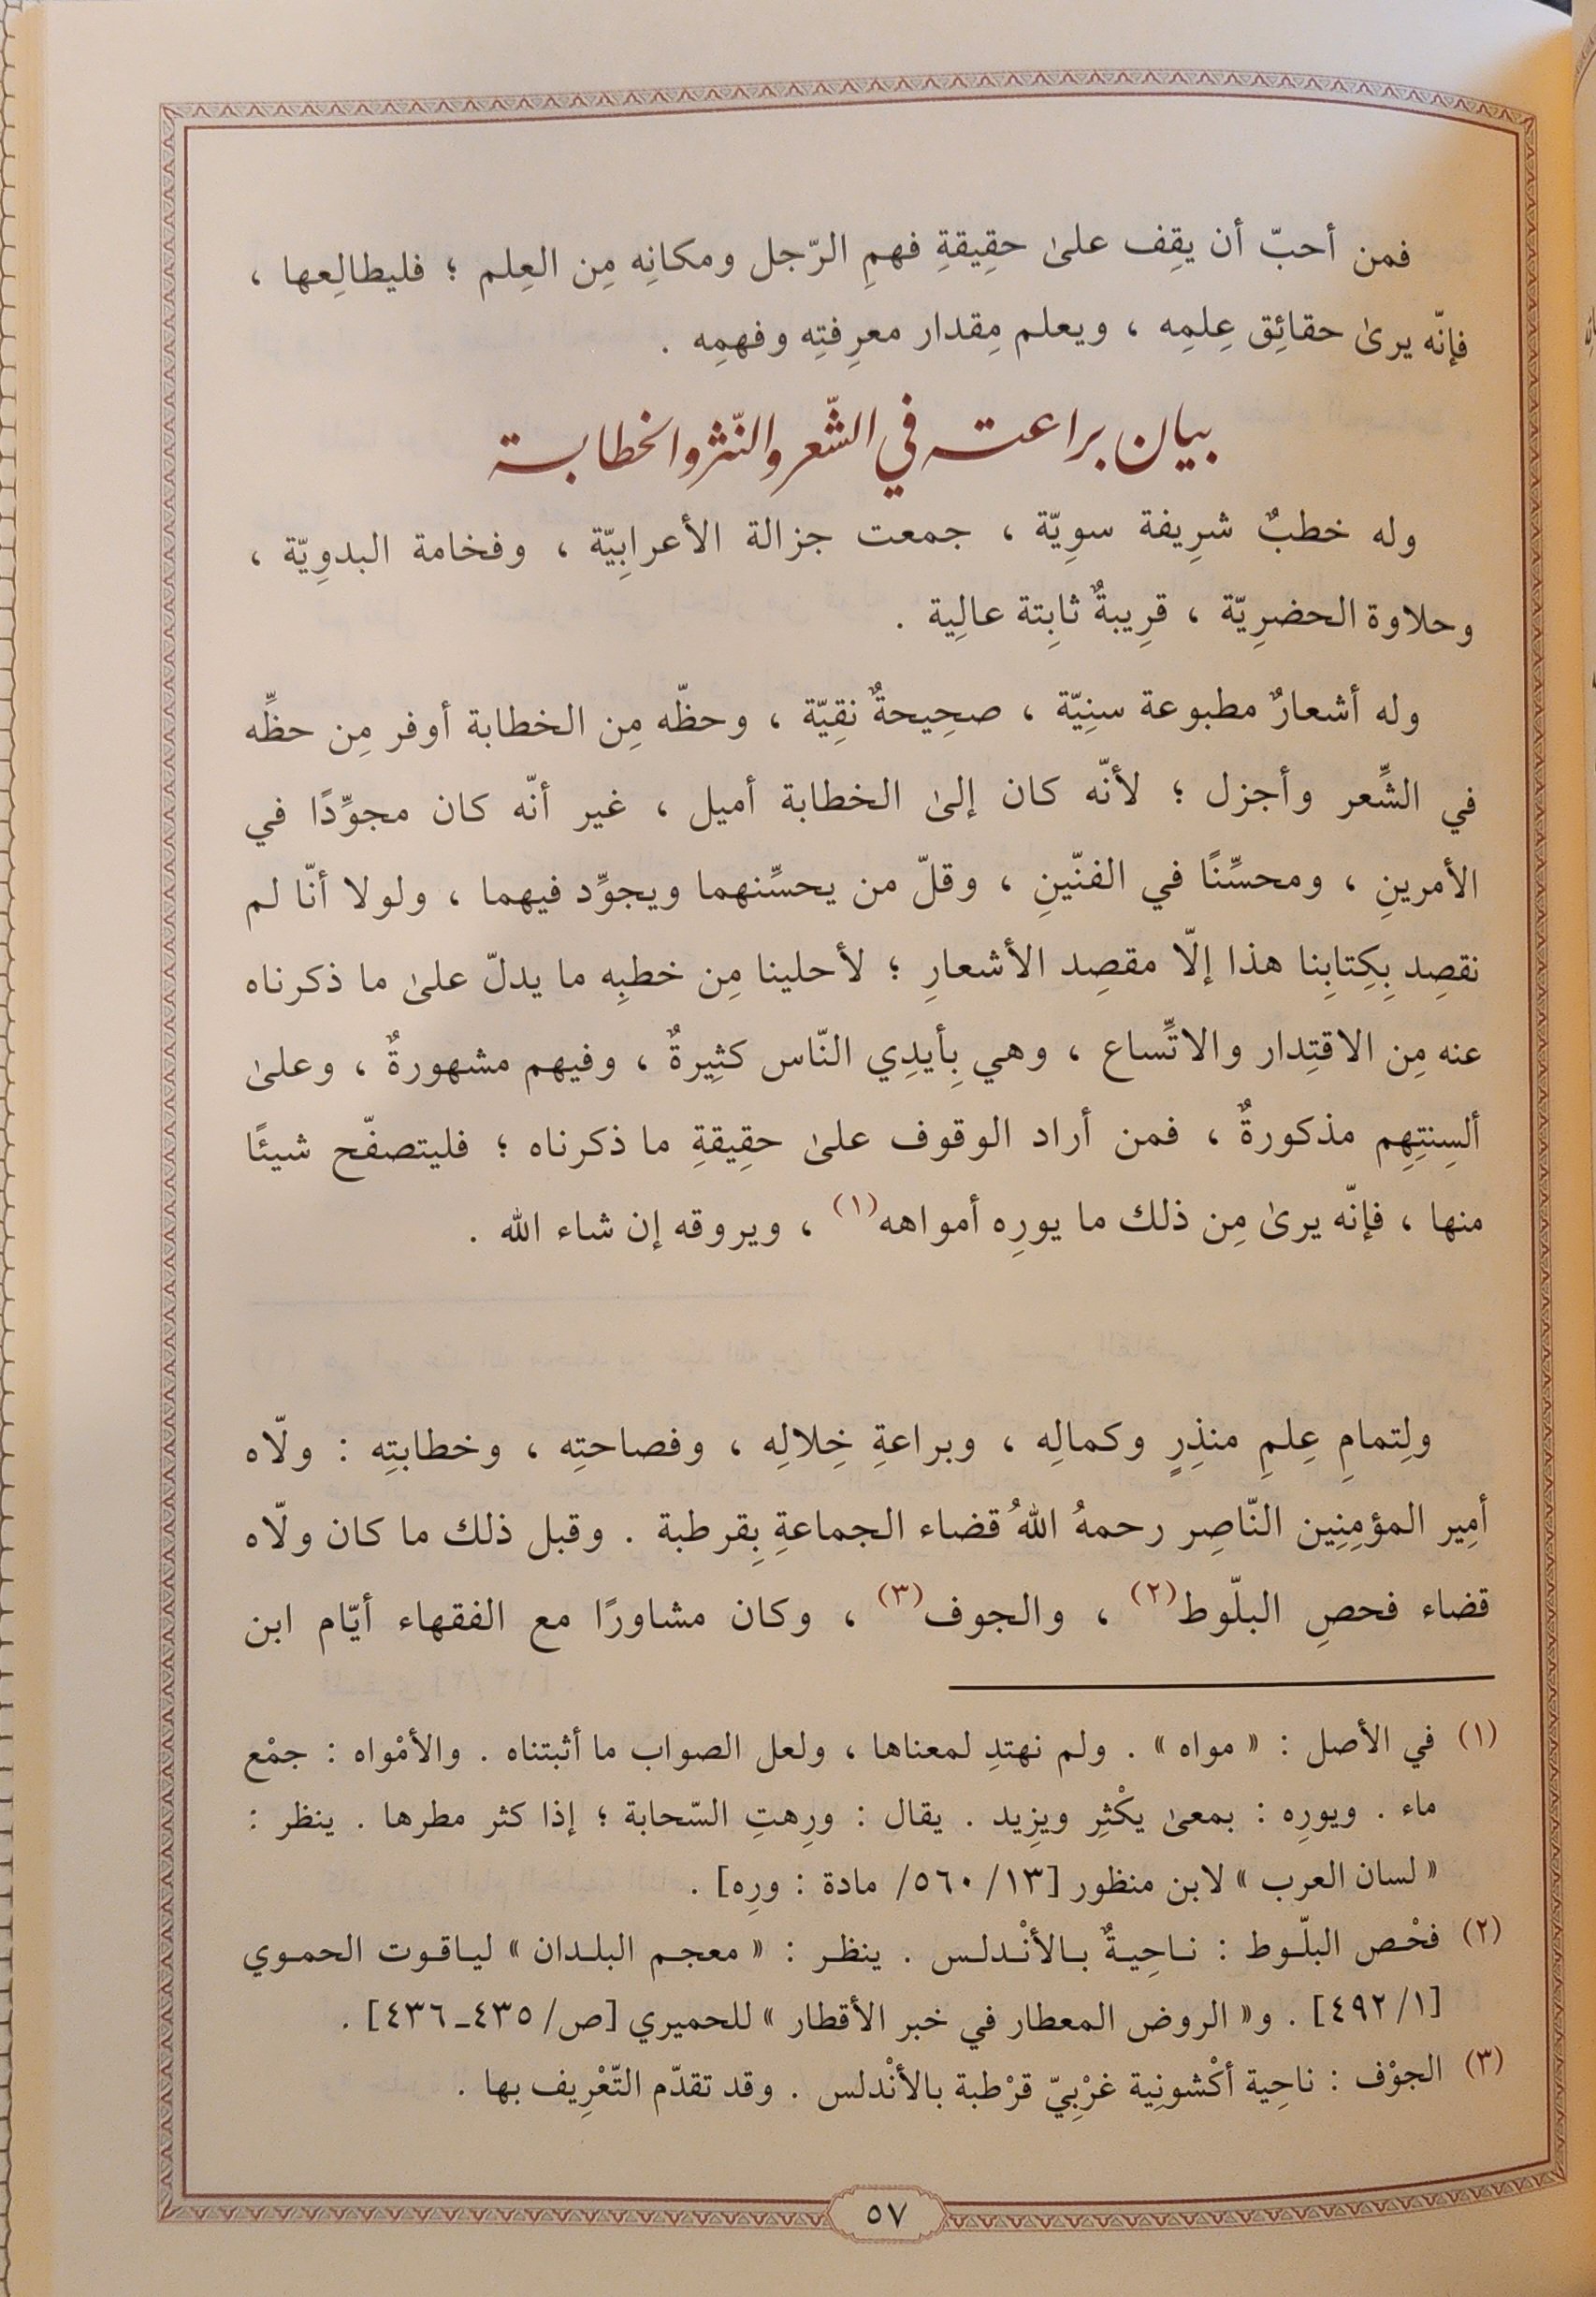 فمن أحبّ أن يقِف علىٰ حقِيقةِ فهمِ الرّجل ومكانِه مِن العِلم ؛ فليطالِعها ،
فإنّه يرىٰ حقائِق عِلمِه ، ويعلم مِقدار معرِفتِه وفهمِه .
بيان براعته في الشّعر والنّثر والخطابة
وله خطبٌ شرِيفة سوِيّة ، جمعت جزالة الأعرابِيّة ، وفخامة البدوِيّة ،
وحلاوة الحضرِيّة ، قرِيبةٌ ثابِتة عالِية .
وله أشعارٌ مطبوعة سنِيّة ، صحِيحةٌ نقِيّة ، وحظّه مِن الخطابة أوفر مِن حظِّه
في الشِّعر وأجزل ؛ لأنّه كان إلىٰ الخطابة أميل ، غير أنّه كان مجوِّدًا في
الأمرينِ ، ومحسِّنًا في الفنّينِ ، وقلّ من يحسِّنهما ويجوِّد فيهما ، ولولا أنّا لم
نقصِد بِكِتابِنا هذا إلّا مقصِد الأشعارِ ؛ لأحلينا مِن خطبِه ما يدلّ علىٰ ما ذكرناه
عنه مِن الاقتِدار والاتِّساع ، وهي بِأيدِي النّاس كثِيرةٌ ، وفيهم مشهورةٌ ، وعلىٰ
ألسِنتِهِم مذكورةٌ ، فمن أراد الوقوف علىٰ حقِيقةِ ما ذكرناه ؛ فليتصفّح شيئًا
منها ، فإنّه يرىٰ مِن ذلك ما يورِه أمواهه(١) ، ويروقه إن شاء الله .
ولِتمامِ عِلمِ منذِرٍ وكمالِه ، وبراعةِ خِلالِه ، وفصاحتِه ، وخطابتِه : ولّاه
أمِير المؤمِنِين النّاصِر رحمهُ اللهُ قضاء الجماعةِ بِقرطبة . وقبل ذلك ما كان ولّاه
قضاء فحصِ البلّوط(٢) ، والجوف(٣) ، وكان مشاورًا مع الفقهاء أيّام ابن
(١) في الأصل : « مواه » . ولم نهتدِ لمعناها ، ولعل الصواب ما أثبتناه . والأمْواه : جمْع
ماء . ويورِه : بمعىٰ يكْثِر ويزِيد . يقال : ورِهتِ السّحابة ؛ إذا كثر مطرها . ينظر :
« لسان العرب » لابن منظور [١٣/ ٥٦٠/ مادة : ورِه] .
(٢) فحْص البلّوط : ناحِيةٌ بالأنْدلس . ينظر : « معجم البلدان » لياقوت الحموي
[١/ ٤٩٢] . و« الروض المعطار في خبر الأقطار » للحميري [ص/ ٤٣٥ـ ٤٣٦] .
(٣) الجوْف : ناحِية أكْشونِية غرْبِيّ قرْطبة بالأنْدلس . وقد تقدّم التّعْرِيف بها .
٥٧